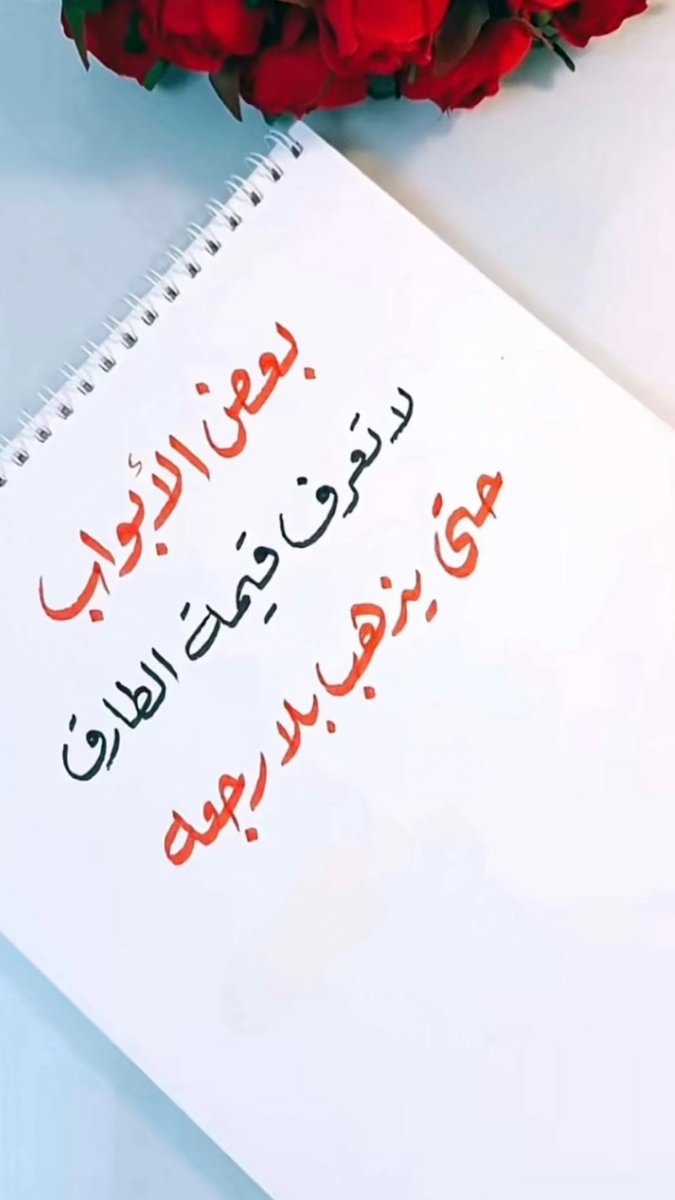 بعض الأبواب
لا تعرف قيمة الطارق
حتى يذهب بلا رجعه